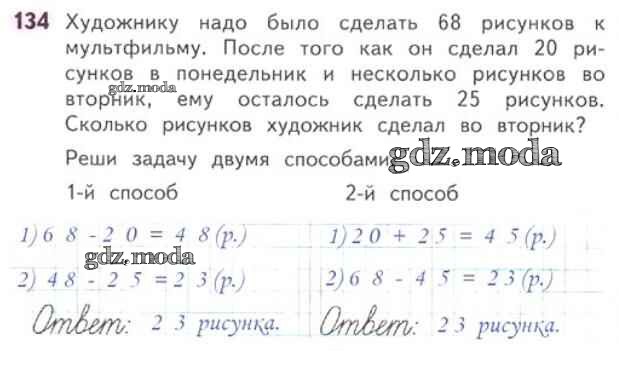 134 Художнику надо было сделать 68 рисунков к
мультфильму. После того как он сделал 20 ри-
сунков в понедельник и несколько рисунков во
gdz.moda
вторник, ему осталось сделать 25 рисунков.
Сколько рисунков художник сделал во вторник?
Реши задачу двумя способами
gdz.moda
1-й способ 2-й способ
1) 6 8 - 2 0 = 4 8 (р.) 1) 2 0 + 2 5 = 4 5 (р.)
gdz.moda
2) 4 8 - 2 5 = 2 3 (р.) 2) 6 8 - 4 5 = 2 3 (р.)
Ответ: 2 3 рисунка. Ответ: 2 3 рисунка.